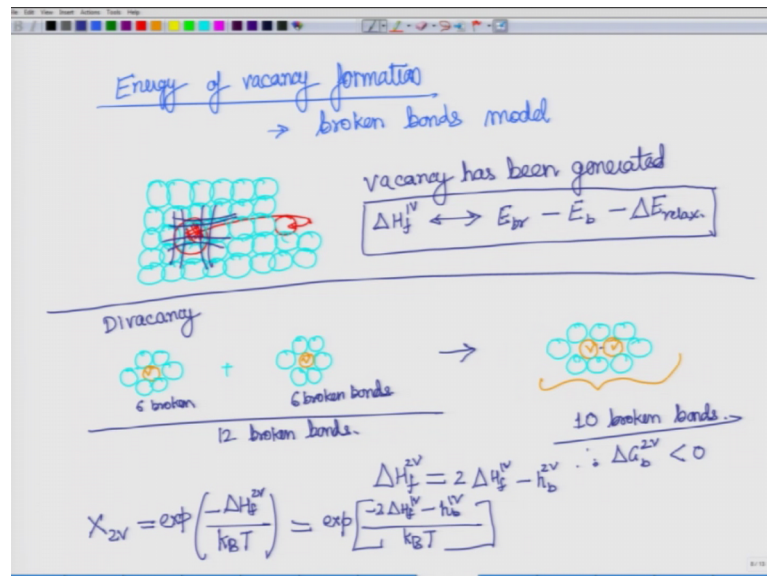 Edit View Insert Actions Tools Help
Energy of vacancy formation
→ broken bonds model
vacancy has been generated
ΔH_f^{1V} ↔ E_br − E_b − ΔE_relax.
Divacancy
V + V → V-V
6 broken
6 broken bonds
12 broken bonds.
10 broken bonds.
∴ ΔG_b^{2V} < 0
ΔH_f^{2V} = 2ΔH_f^{1V} − h_b^{2V}
X_2V = exp(−ΔH_f^{2V} / k_BT) = exp[−2ΔH_f^{1V} − h_b^{1V} / k_BT]